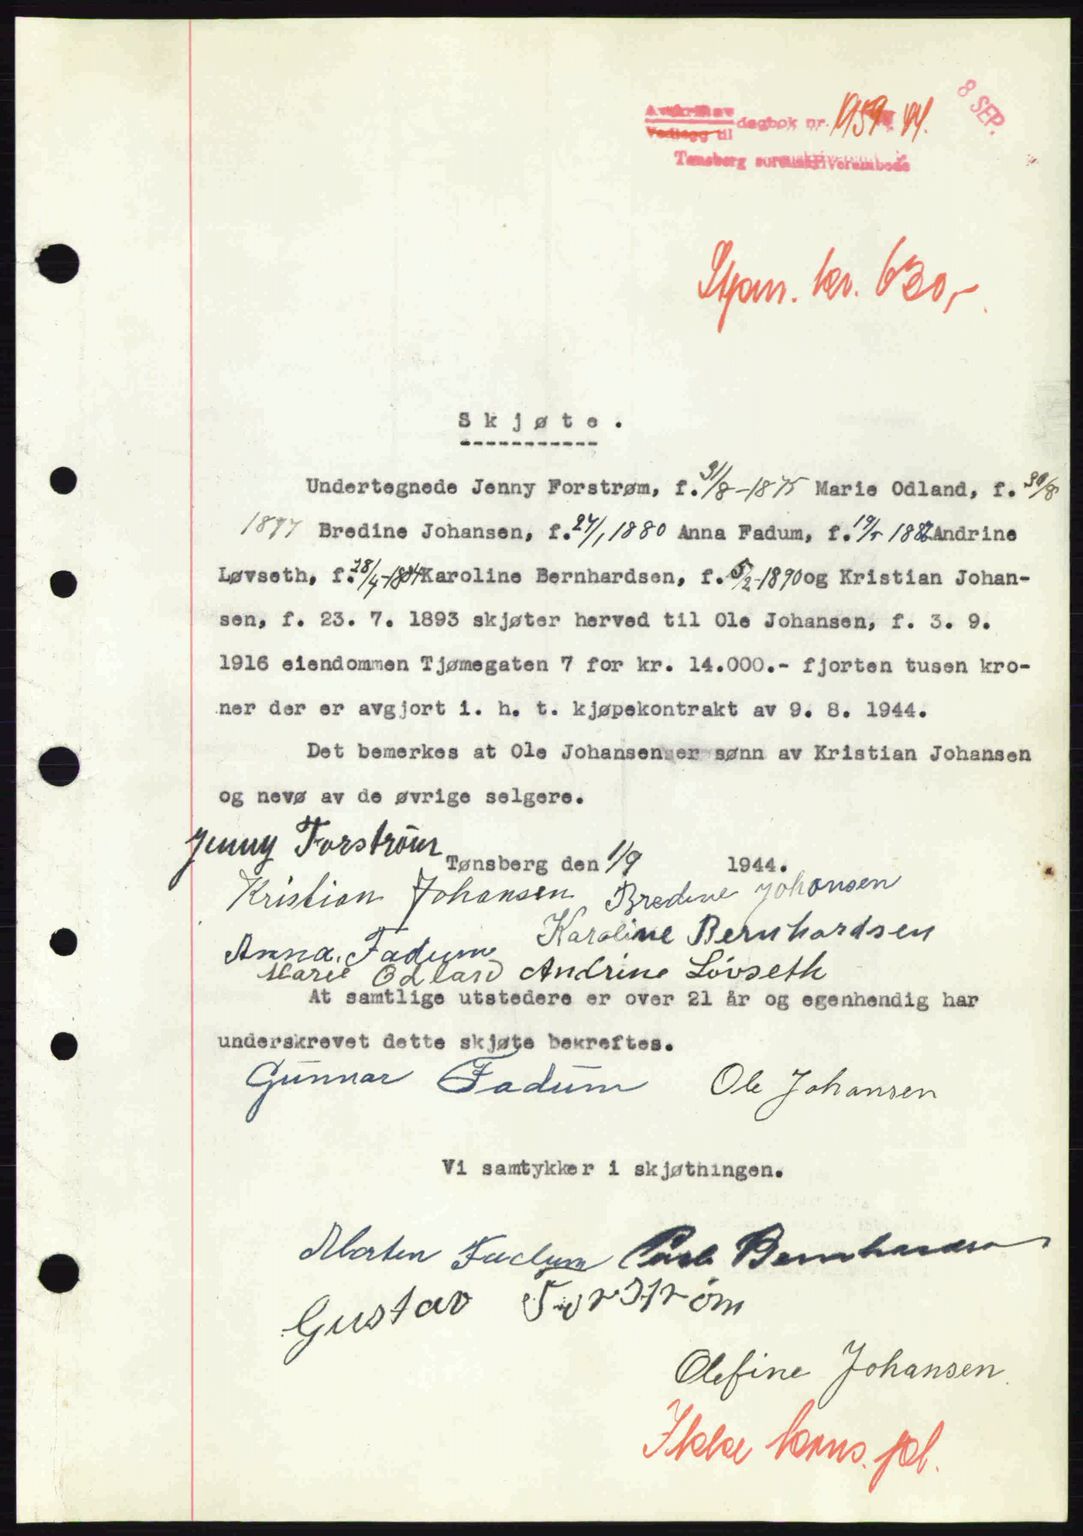 8 SEP.
Avskrift av dagbok nr. 1959. 44.
Vedlegg til
Tønsberg sorenskriverembede
kr. 630,-
Skjøte.
Undertegnede Jenny Forstrøm, f. 31/8-1875 Marie Odland, f. 30/8
1877 Bredine Johansen, f. 27/1 1880 Anna Fadum, f. 19/5 1882 Andrine
Løvseth, f. 28/4-1884 Karoline Bernhardsen, f. 5/2-1890 og Kristian Johan-
sen, f. 23. 7. 1893 skjøter herved til Ole Johansen, f. 3. 9.
1916 eiendommen Tjømegaten 7 for kr. 14.000.- fjorten tusen kro-
ner der er avgjort i. h. t. kjøpekontrakt av 9. 8. 1944.
Det bemerkes at Ole Johansen er sønn av Kristian Johansen
og nevø av de øvrige selgere.
Jenny Forstrøm
Tønsberg den 1/9 1944.
Kristian Johansen Bredine Johansen
Anna Fadum Karoline Bernhardsen
Marie Odland Andrine Løvseth
At samtlige utstedere er over 21 år og egenhendig har
underskrevet dette skjøte bekreftes.
Gunnar Fadum Ole Johansen
Vi samtykker i skjøthingen.
Morten Fadum Carl Bernhardsen
Gustav Forstrøm
Olefine Johansen
Ikke kons. pl.